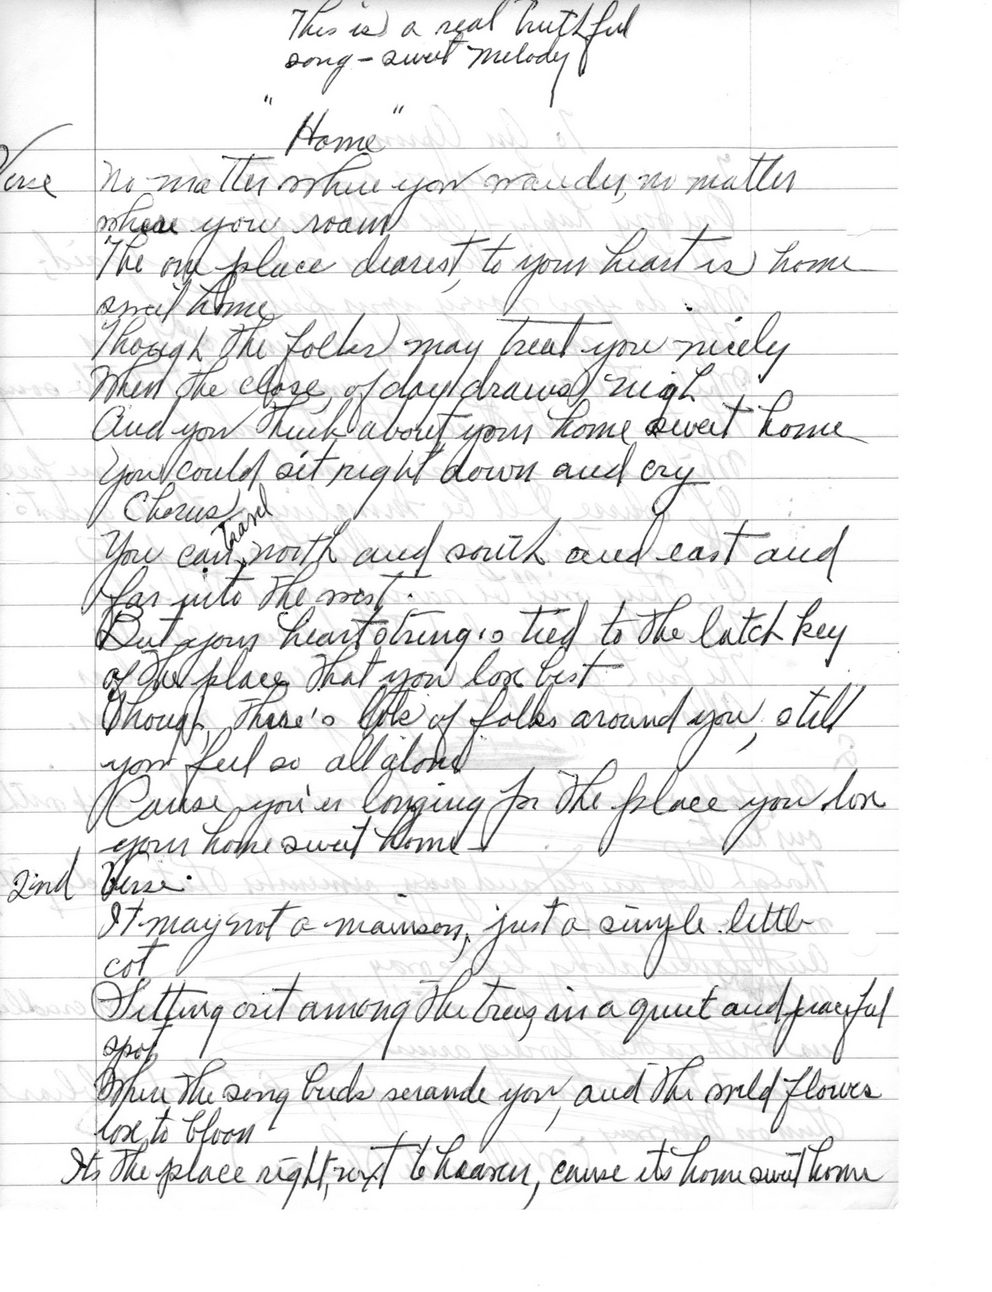 This is a real truthful
song - sweet melody
"Home"
Verse No matter where you wander, no matter
where you roam
The one place dearest, to your heart is home
sweet home
Though the folks may treat you nicely
When the close, of day draws nigh
And you think about your home sweet home
You could sit right down and cry
Chorus
You can travel north and south and east and
far into the west.
But your heart string's tied to the latch key
of the place that you love best
Though, there's lots of folks around you, still
you feel so all alone
Cause you're longing for the place you love
your home sweet home
2nd Verse.
It may not a mainson, just a simple little
cot
Sitting out among the trees, in a quiet and peaceful
spot
Where the song birds serande you, and the wild flowers
love to bloom
Its the place right, next to heaven, cause its home sweet home